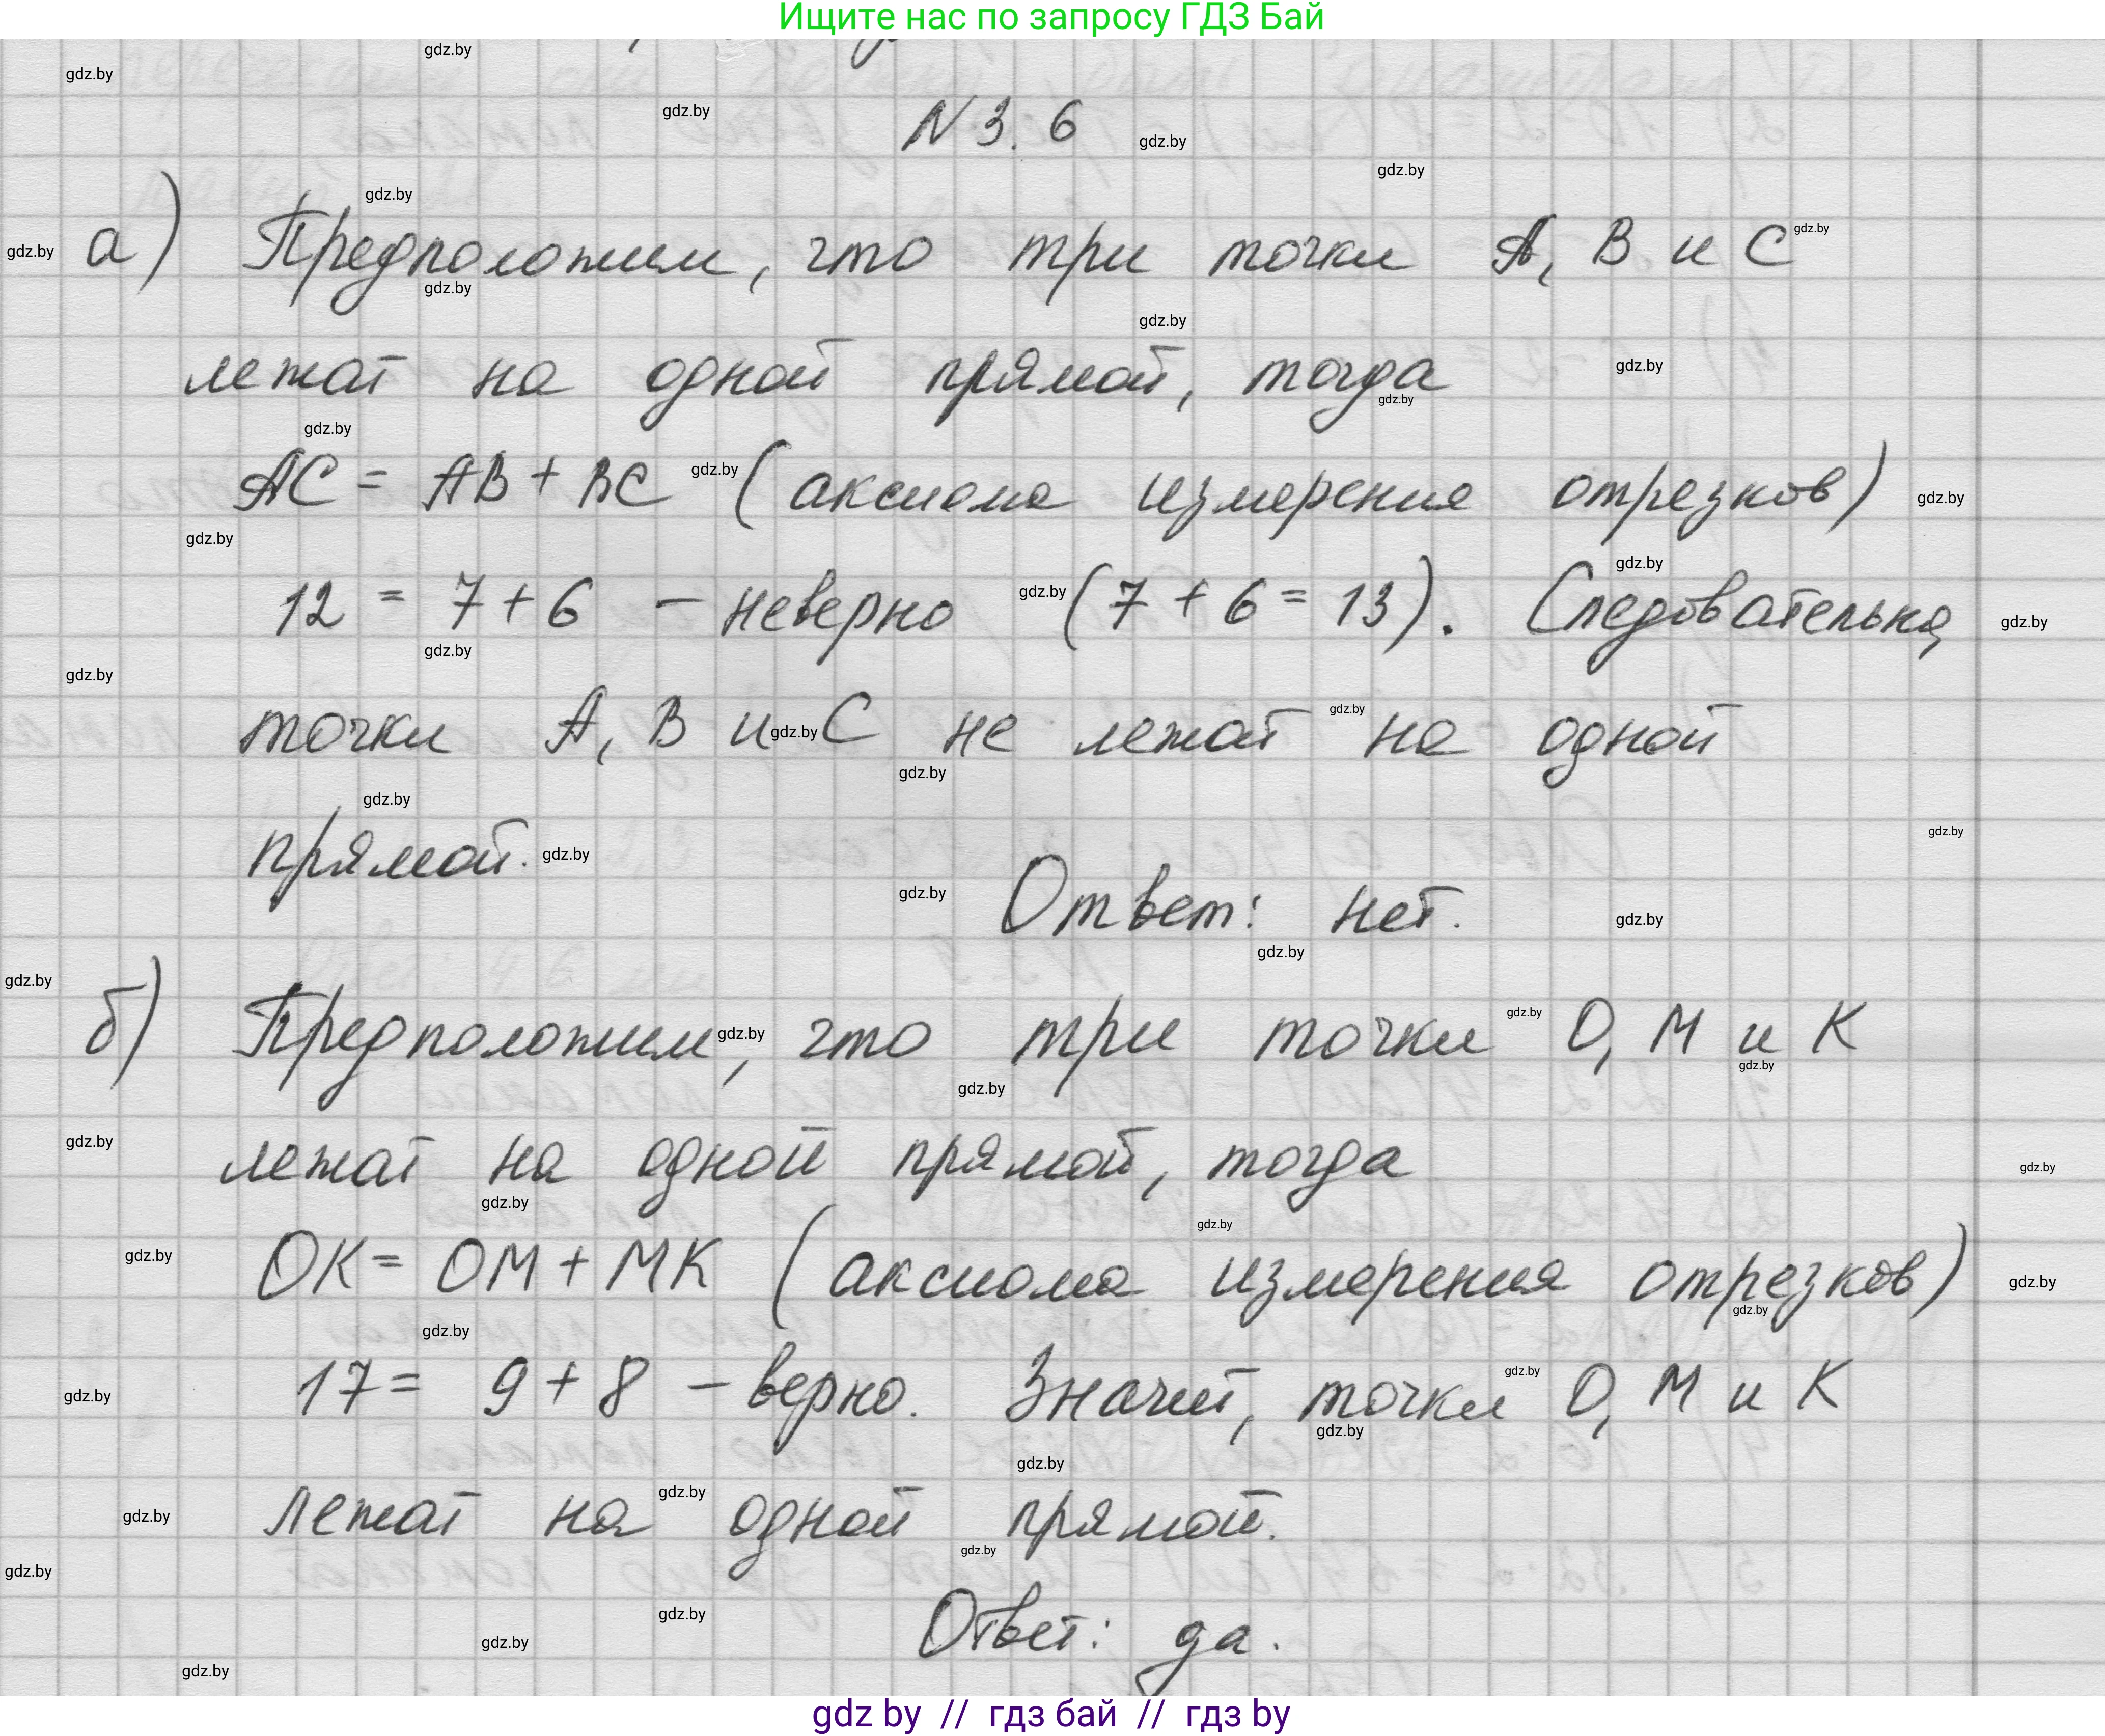 Ищите нас по запросу ГДЗ Бай
N 3.6
а) Предположим, что три точки A, B и C
лежат на одной прямой, тогда
AC = AB + BC (аксиома измерения отрезков)
12 = 7 + 6 - неверно (7 + 6 = 13). Следовательно,
точки A, B и C не лежат на одной
прямой.
Ответ: нет.
б) Предположим, что три точки O, M и K
лежат на одной прямой, тогда
OK = OM + MK (аксиома измерения отрезков)
17 = 9 + 8 - верно. Значит, точки O, M и K
лежат на одной прямой.
Ответ: да.
gdz by // гдз бай // гдз by